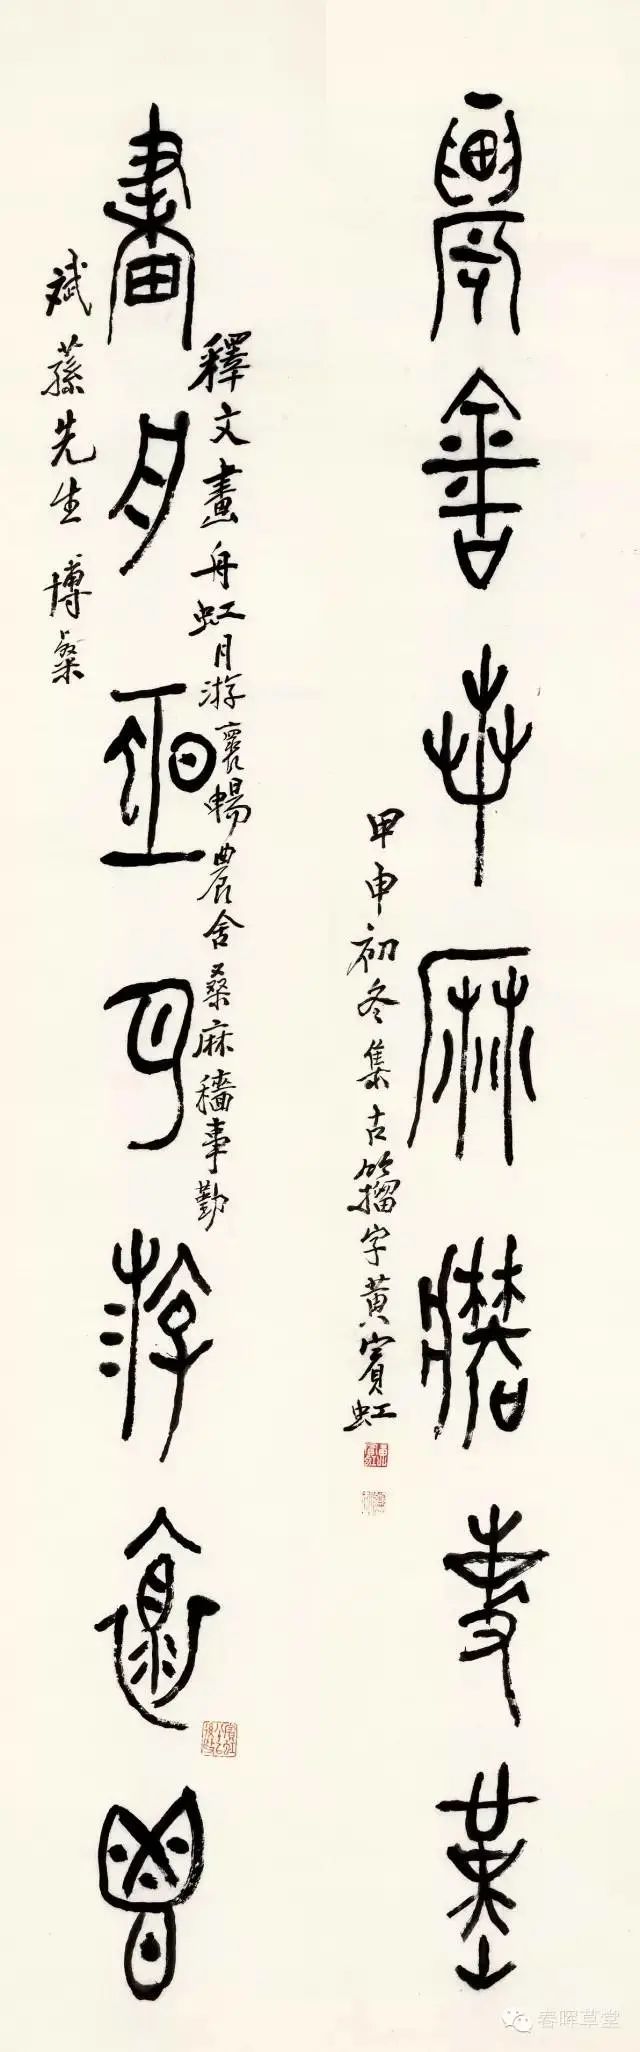 農舍桑麻穡事勤
甲申初冬集古籀字黃賓虹
釋文畫舟虹月游褱暢農舍桑麻穡事勤
畫舟虹月游褱暢
斌蓀先生博粲
春晖草堂